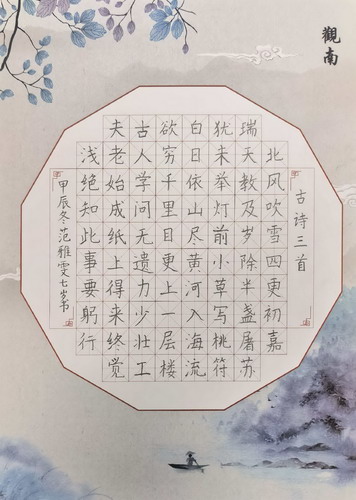 觀南
古诗三首
北风吹雪四更初嘉
瑞天教及岁除半盏屠苏
犹未举灯前小草写桃符
白日依山尽黄河入海流
欲穷千里目更上一层楼
古人学问无遗力少壮工
夫老始成纸上得来终觉
浅绝知此事要躬行
甲辰冬范雅雯七岁书